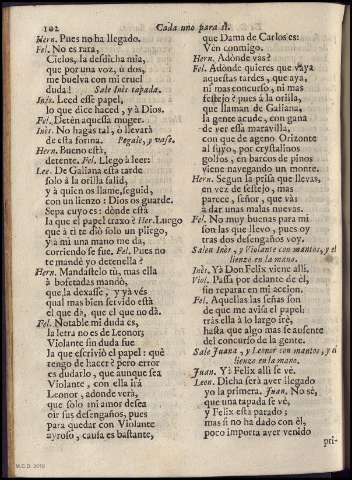 102 Cada uno para sì.
Hern. Pues no ha llegado.
Fel. No es rara,
Cielos, la desdicha mia,
que por una voz, ù dos,
me buelva con mi cruel
duda! Sale Inès tapada.
Inès. Leed esse papel,
lo que dice haced, y à Dios.
Fel. Detèn aquessa muger.
Inès. No hagas tal, ò llevarà
de esta forma. Pegale, y vase.
Hern. Bueno està,
detente. Fel. Llego à leer:
Lee. De Galiana esta tarde
solo à la orilla salid,
y à quien os llame, seguid,
con un lienzo: Dios os guarde.
Sepa cuyo es: dònde està
la que el papel traxo? Her. Luego
que à ti te diò solo un pliego,
y à mi una mano me da,
corriendo se fue. Fel. Pues no
te mandè yo detenella?
Hern. Mandastelo tù, mas ella
à bofetadas mandò,
que la dexasse, y yà vès
qual mas bien servido està
el que dà, que el que no dà.
Fel. Notable mi duda es,
la letra no es de Leonor;
Violante sin duda fue
la que escriviò el papel: què
tengo de hacer? pero error
es dudarlo, que aunque sea
Violante, con ella irà
Leonor, adonde verà,
que solo mi amor desea
oir sus desengaños, pues
para quedar con Violante
ayroso, causa es bastante,
que Dama de Carlos es:
Ven conmigo.
Hern. Adònde vas?
Fel. Adònde quieres que vaya
aquestas tardes, que aya,
ni mas concurso, ni mas
festejo? pues à la orilla,
que llaman de Galiana,
la gente acude, con gana
de vèr essa maravilla,
con que de ageno Orizonte
al suyo, por crystalinos
golfos, en barcos de pinos
viene navegando un monte.
Hern. Segun la prisa que llevas,
en vez de festejo, mas
parece, señor, que vàs
à dar unas malas nuevas.
Fel. No muy buenas para mi
son las que llevo, pues oy
tras dos desengaños voy.
Salen Inès, y Violante con mantos, y el
lienzo en la mano.
Inès. Yà Don Felix viene alli.
Viol. Passa por delante de èl,
sin reparar en mi accion.
Fel. Aquellas las señas son
de que me avisa el papel:
tràs ella à lo largo irè,
hasta que algo mas se ausente
del concurso de la gente.
Sale Juana, y Leonor con mantos, y el
lienzo en la mano.
Juan. Yà Felix alli se vè.
Leon. Dicha serà aver llegado
yo la primera. Juan. No sè,
que una tapada se vè,
y Felix està parado;
mas si no ha dado con èl,
poco importa aver venido
pri-
M.C.D. 2018